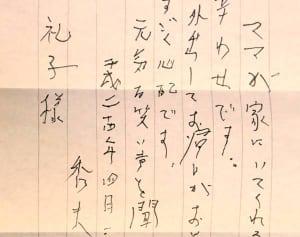 ママが家にいてくれる
幸わせです。
外出してお帰りがお
すごく心配です。
元気な笑い声を聞
平成二十四年四月二
秀夫
礼子様